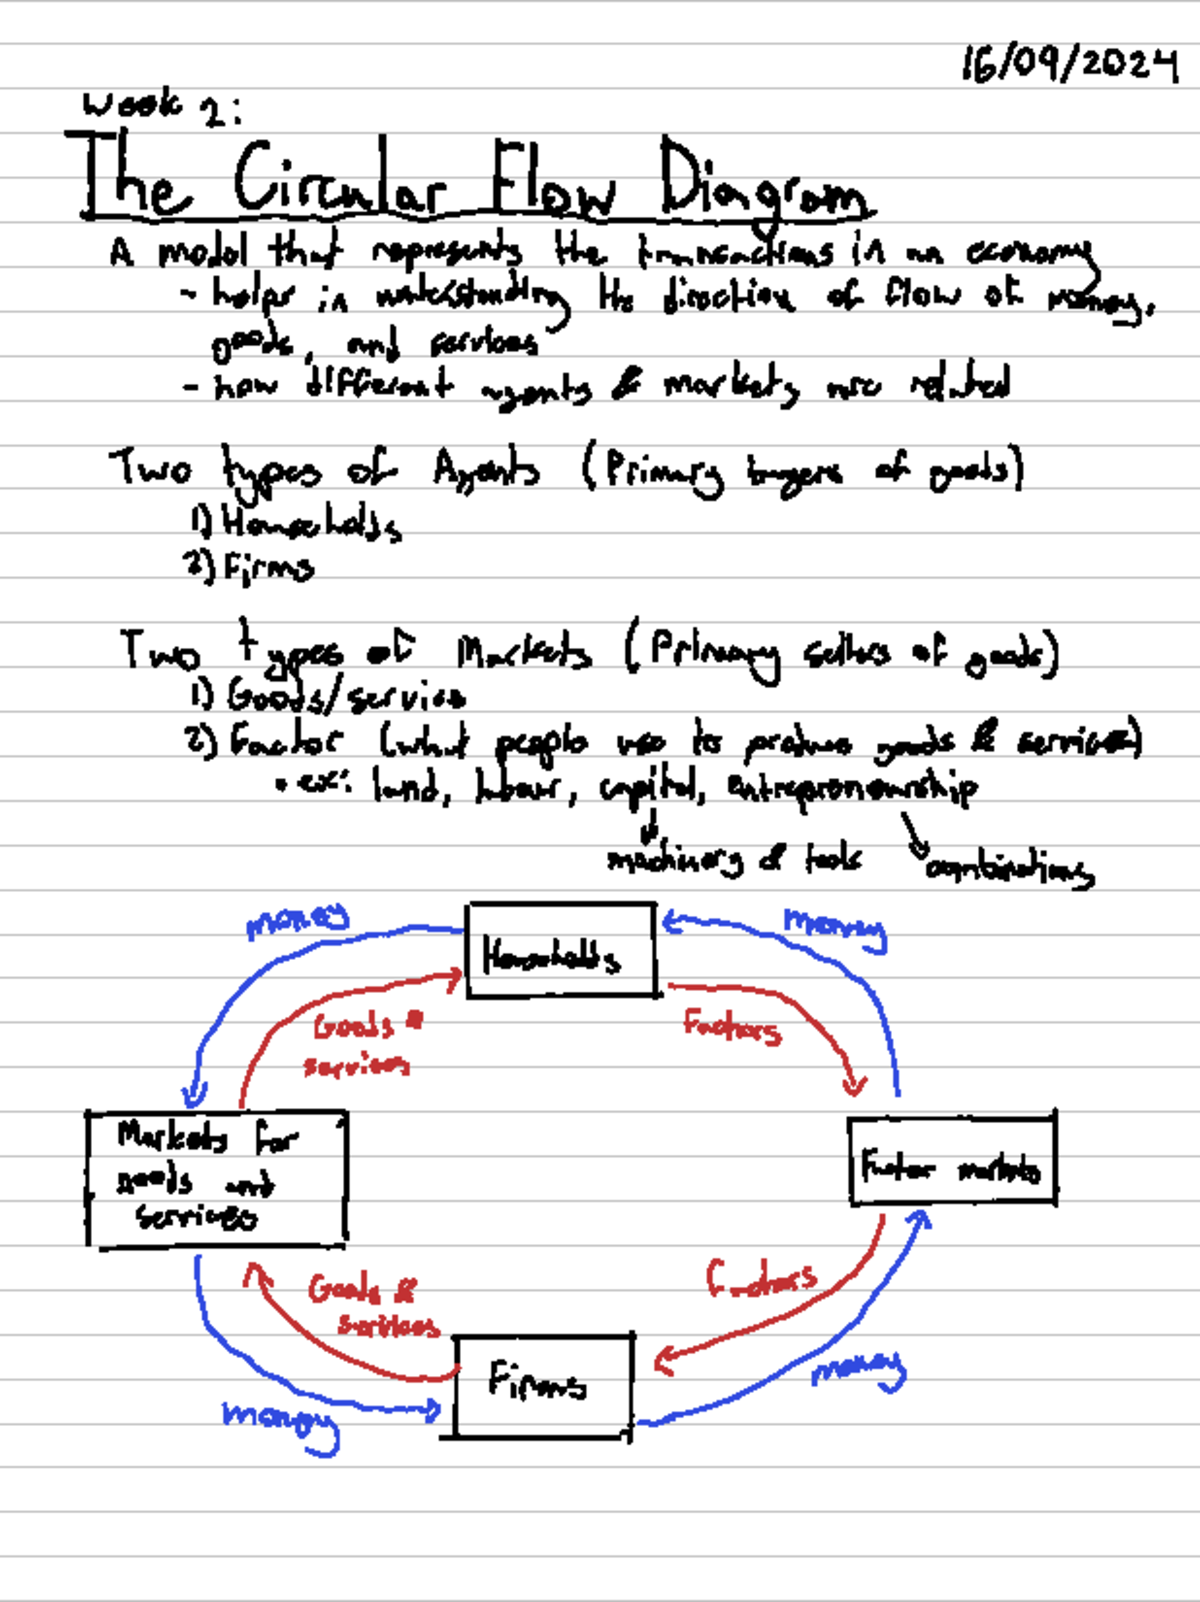 16/09/2024
Week 2:
The Circular Flow Diagram
A model that represents the transactions in an economy
- helps in understanding the direction of flow of money,
goods, and services
- how different agents & markets are related
Two types of Agents (Primary buyers of goods)
1) Households
2) Firms
Two types of Markets (Primary sellers of goods)
1) Goods/service
2) Factor (what people use to produce goods & services)
• ex: land, labour, capital, entrepreneurship
machinery & tools
combinations
money
money
Households
Goods &
services
Factors
Markets for
goods and
services
Factor markets
Goods &
services
Factors
Firms
money
money